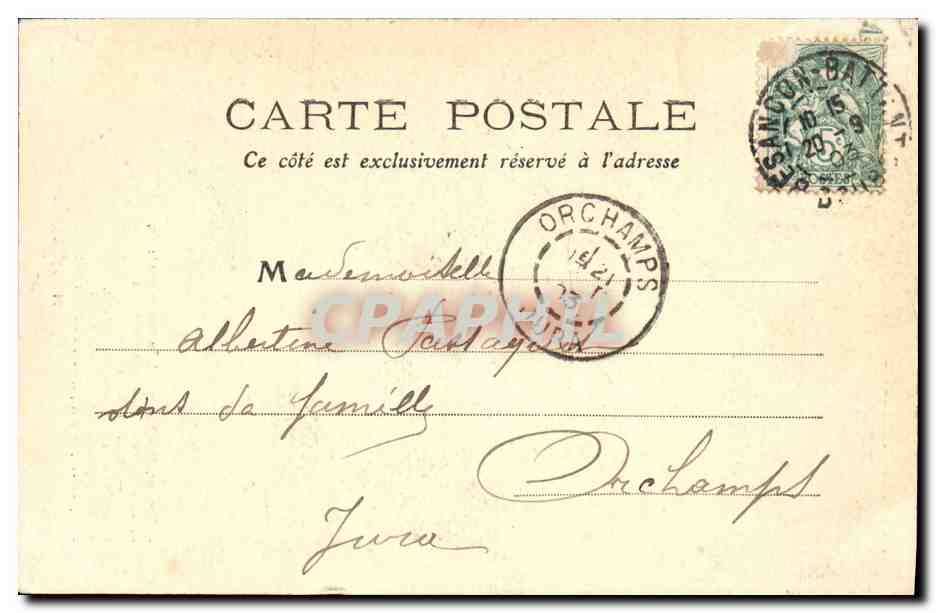 CARTE POSTALE
Ce côté est exclusivement réservé à l'adresse
BESANCON-BATTANT
DOUBS
15
10 9
20 03
5
POSTES
ORCHAMPS
21
03
JURA
Mademoiselle
CPAPHIL
Albertine
dans sa famille
Orchamps
Jura